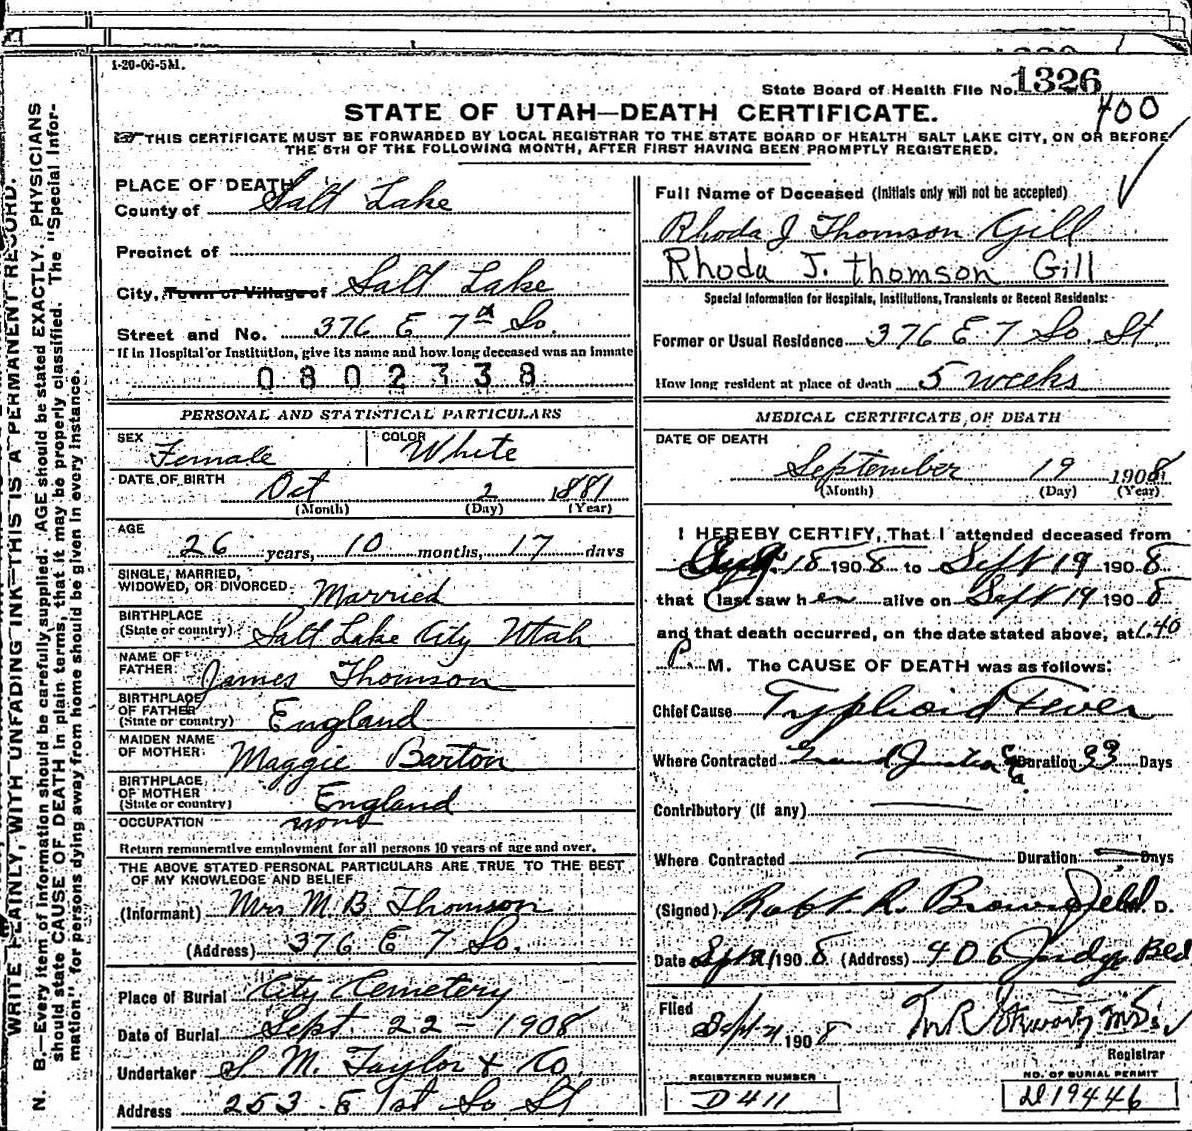 1-20-06-5M.
State Board of Health File No. 1326
400
STATE OF UTAH—DEATH CERTIFICATE.
THIS CERTIFICATE MUST BE FORWARDED BY LOCAL REGISTRAR TO THE STATE BOARD OF HEALTH SALT LAKE CITY, ON OR BEFORE
THE 5TH OF THE FOLLOWING MONTH, AFTER FIRST HAVING BEEN PROMPTLY REGISTERED.
WRITE PLAINLY, WITH UNFADING INK—THIS IS A PERMANENT RECORD.
N. B.—Every item of information should be carefully supplied. AGE should be stated EXACTLY. PHYSICIANS
should state CAUSE OF DEATH in plain terms, that it may be properly classified. The "Special Infor-
mation" for persons dying away from home should be given in every instance.
PLACE OF DEATH
County of Salt Lake
Precinct of
City, Town or Village of Salt Lake
Street and No. 376 E 7th So.
If in Hospital or Institution, give its name and how long deceased was an inmate
0802338
PERSONAL AND STATISTICAL PARTICULARS
SEX Female COLOR White
DATE OF BIRTH Oct 2 1881
(Month) (Day) (Year)
AGE 26 years, 10 months, 17 days
SINGLE, MARRIED,
WIDOWED, OR DIVORCED Married
BIRTHPLACE
(State or country) Salt Lake City Utah
NAME OF
FATHER James Thomson
BIRTHPLACE
OF FATHER
(State or country) England
MAIDEN NAME
OF MOTHER Maggie Barton
BIRTHPLACE
OF MOTHER
(State or country) England
OCCUPATION none
Return remunerative employment for all persons 10 years of age and over.
THE ABOVE STATED PERSONAL PARTICULARS ARE TRUE TO THE BEST
OF MY KNOWLEDGE AND BELIEF
(Informant) Mrs M. B Thomson
(Address) 376 E 7 So.
Place of Burial City Cemetery
Date of Burial Sept. 22 - 1908
Undertaker S. M. Taylor & Co.
Address 253 E 1st So St
Full Name of Deceased (Initials only will not be accepted)
Rhoda J Thomson Gill
Rhoda J. thomson Gill
Special Information for Hospitals, Institutions, Transients or Recent Residents:
Former or Usual Residence 376 E 7 So. St
How long resident at place of death 5 weeks
MEDICAL CERTIFICATE OF DEATH
DATE OF DEATH
September 19 1908
(Month) (Day) (Year)
I HEREBY CERTIFY, That I attended deceased from
Aug. 18 1908 to Sept 19 1908
that I last saw her alive on Sept 19 1908
and that death occurred, on the date stated above, at 1.40
P M. The CAUSE OF DEATH was as follows:
Chief Cause Typhoid Fever
Where Contracted Grand Junction Duration 33 Days
Contributory (if any)
Where Contracted Duration Days
(Signed) Robt. R. Brownfield M. D.
Date 1908 (Address) 406 Judge Bld
Filed 1908
Registrar
REGISTERED NUMBER
D411
NO. OF BURIAL PERMIT
D19446